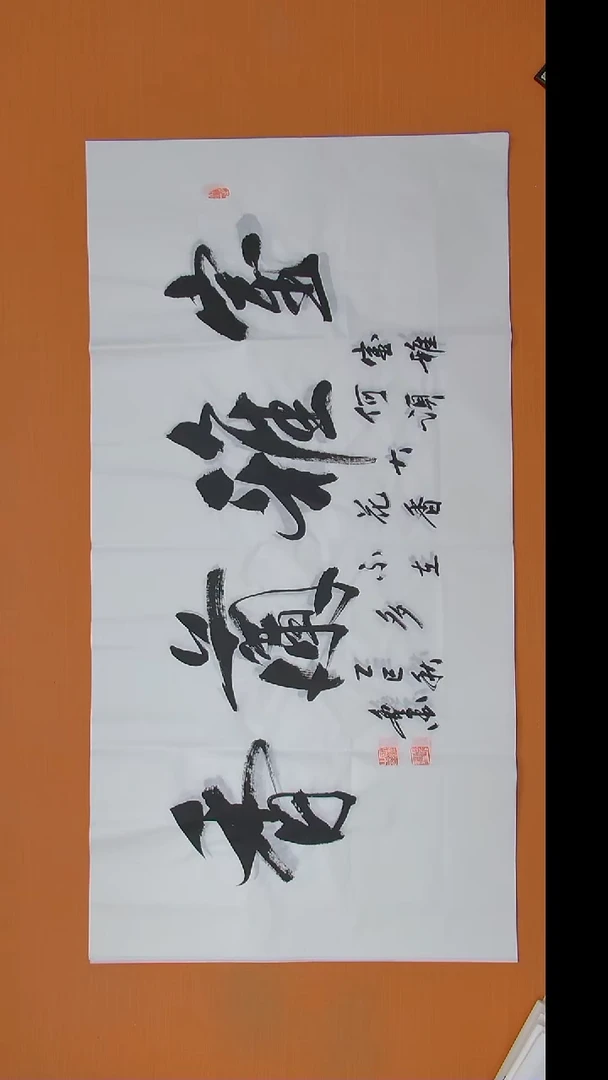 室雅蘭香
室雅
何須
大
花香
不在
多
乙巳秋